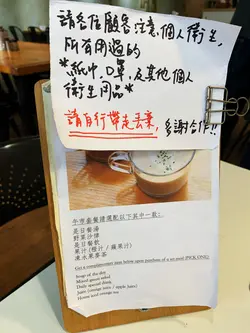 請各位顧客注意個人衛生,
所有用過的
*紙巾、口罩、及其他個人
衛生用品*
請自行帶走丟棄,多謝合作!!
午市套餐請選配以下其中一款:
是日餐湯
野菜沙律
是日餐飲
果汁(橙汁 / 蘋果汁)
凍水果賓茶
Soup of the day
Mixed green salad
Daily special drink
Juice (orange juice / apple juice)